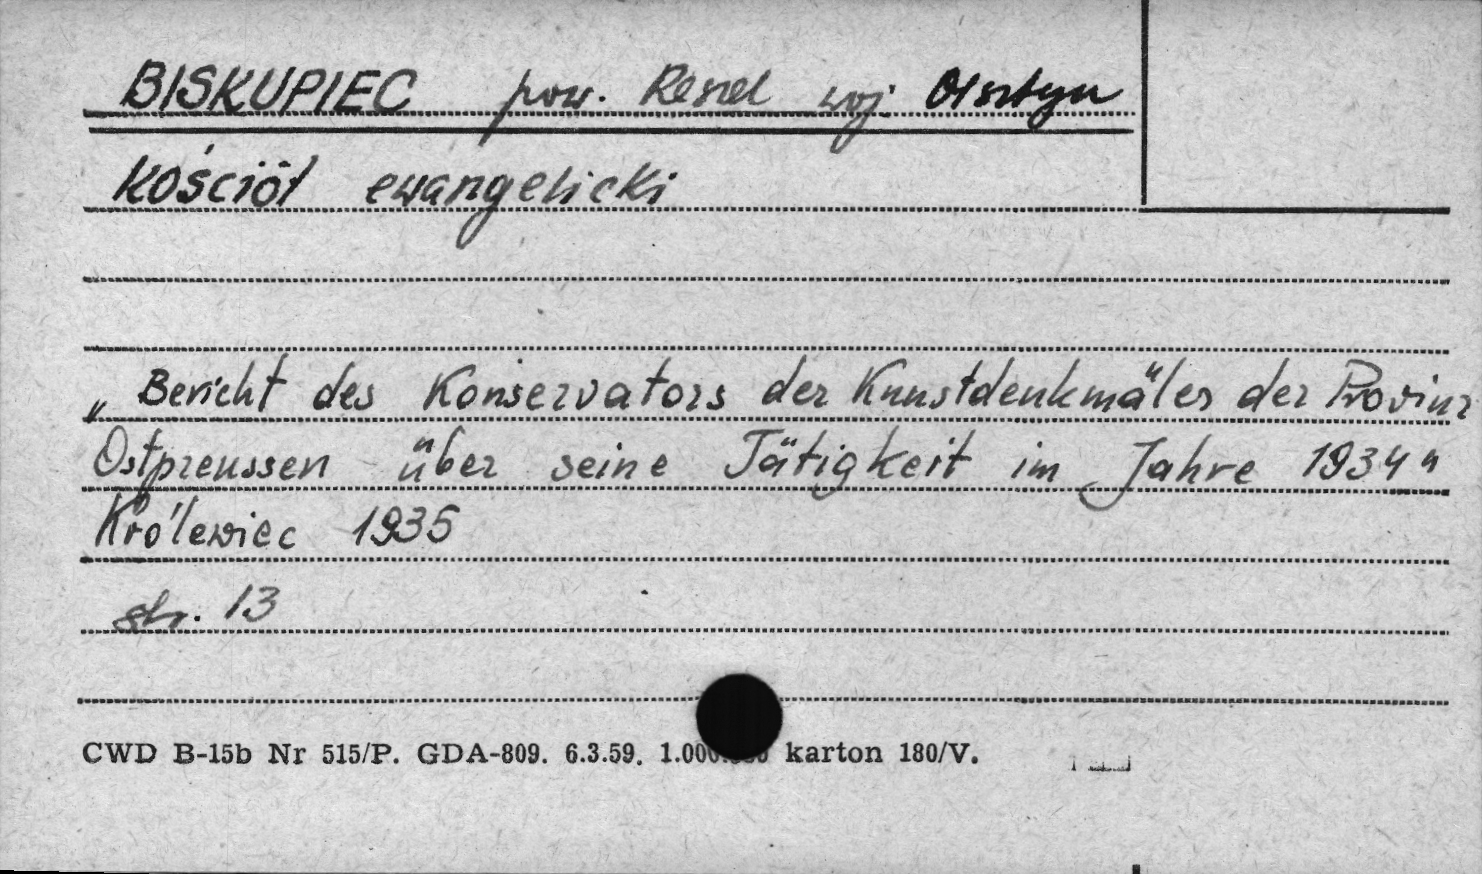 BISKUPIEC pow. Reszel woj. Olsztyn
Kościół ewangelicki
„Bericht des Konservators der Kunstdenkmäler der Provinz
Ostpreussen über seine Tätigkeit im Jahre 1934"
Królewiec 1935
str. 13
CWD B-15b Nr 515/P. GDA-809. 6.3.59. karton 180/V.